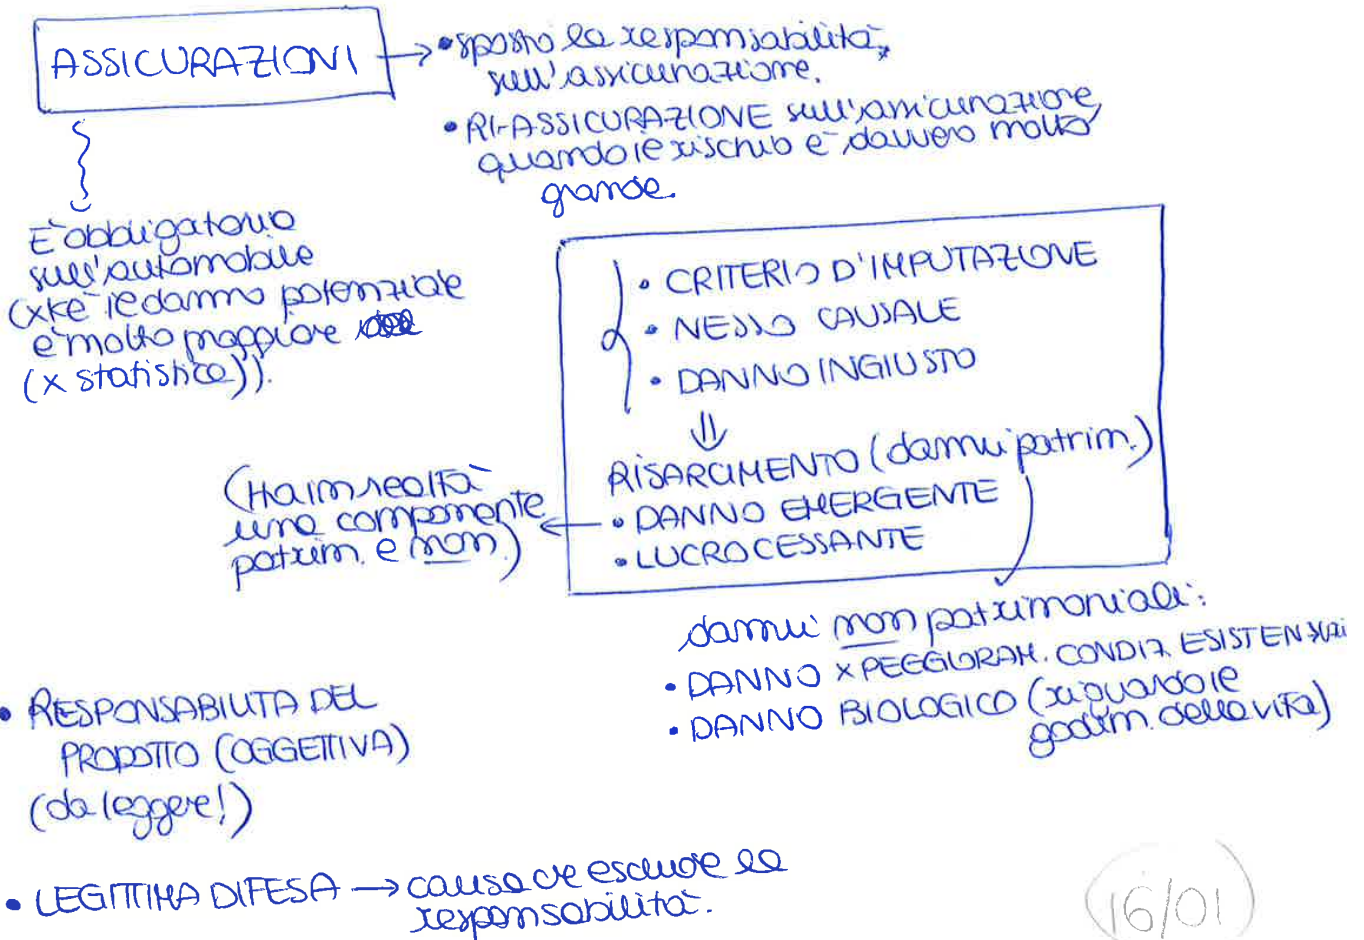 ASSICURAZIONI
→ • sposto la responsabilità
sull'assicurazione.
• RI-ASSICURAZIONE sull'assicurazione
quando il rischio è davvero molto
grande.
È obbligatorio
sull'automobile
(xkè il danno potenziale
è molto maggiore
(x statistica)).
• CRITERIO D'IMPUTAZIONE
• NESSO CAUSALE
• DANNO INGIUSTO
⇓
RISARCIMENTO (danni patrim.)
• DANNO EMERGENTE
• LUCRO CESSANTE
(Ha in realtà
una componente
patrim. e non.)
danni non patrimoniali:
• DANNO x PEGGIORAM. CONDIZ. ESISTENZIALI
• DANNO BIOLOGICO (riguarda il
godim. della vita)
• RESPONSABILITA DEL
PRODOTTO (OGGETTIVA)
(da leggere!)
• LEGITTIMA DIFESA → causa che esclude la
responsabilità.
16/01